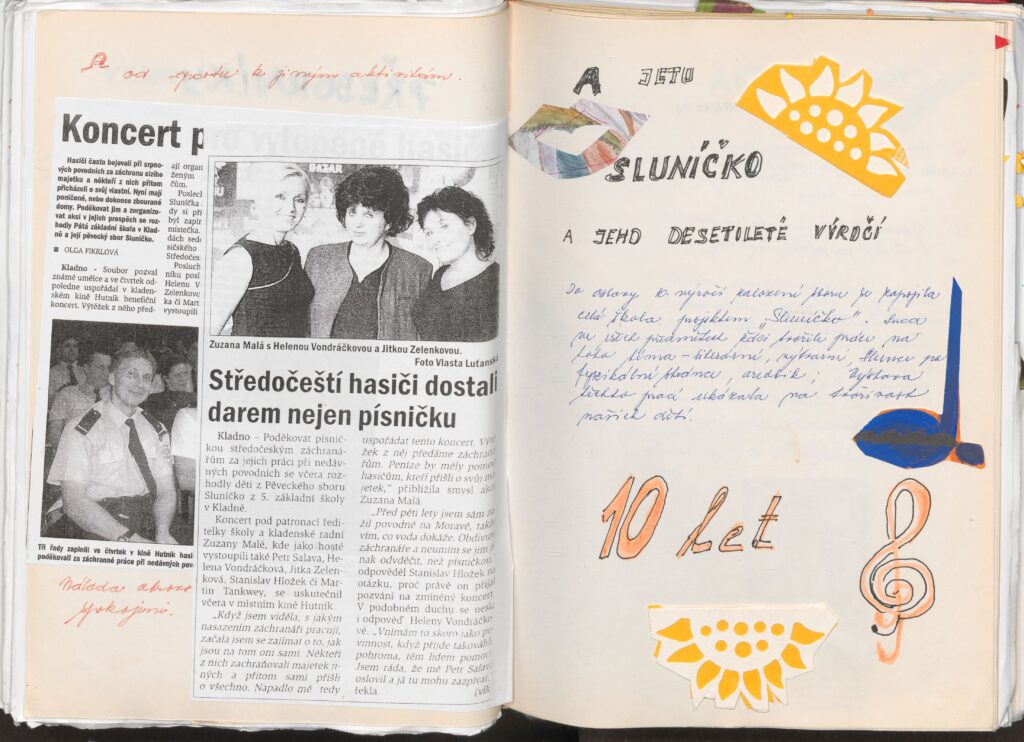 A od sportu k jiným aktivitám.
Koncert p
Hasiči často bojovali při srpno-
vých povodních za záchranu cizího
majetku a někteří z nich přitom
přicházeli o svůj vlastní. Nyní mají
poničené, nebo dokonce zbourané
domy. Poděkovat jim a zorganizo-
vat akci v jejich prospěch se roz-
hodly Pátá základní škola v Klad-
ně a její pěvecký sbor Sluníčko.
■ OLGA FIKRLOVÁ
Kladno - Soubor pozval
známé umělce a ve čtvrtek od-
poledne uspořádal v kladen-
ském kině Hutník benefiční
koncert. Výtěžek z něho před-
ali organ
ženým
čům.
Poslech
Sluníčka
dy si při
byl zapln
místečka.
dách sed
sičského
Středočes
Posluch
níku posl
Helenu V
Zelenkovo
ka či Mart
vystoupili
BAZAR
Zuzana Malá s Helenou Vondráčkovou a Jitkou Zelenkovou.
Foto Vlasta Luťanská
Středočeští hasiči dostali
darem nejen písničku
Kladno – Poděkovat písnič-
kou středočeským záchraná-
řům za jejich práci při nedáv-
ných povodních se včera roz-
hodly děti z Pěveckého sboru
Sluníčko z 5. základní školy
v Kladně.
Koncert pod patronací ředi-
telky školy a kladenské radní
Zuzany Malé, kde jako hosté
vystoupili také Petr Salava, He-
lena Vondráčková, Jitka Zelen-
ková, Stanislav Hložek či Mar-
tin Tankwey, se uskutečnil
včera v místním kině Hutník.
„Když jsem viděla, s jakým
nasazením záchranáři pracují,
začala jsem se zajímat o to, jak
jsou na tom oni sami. Někteří
z nich zachraňovali majetek ji-
ných a přitom sami přišli
o všechno. Napadlo mě tedy
uspořádat tento koncert. Výtě-
žek z něj předáme záchraná-
řům. Peníze by měly pomoci
hasičům, kteří přišli o svůj ma-
jetek,“ přiblížila smysl akce
Zuzana Malá.
„Před pěti lety jsem sám za-
žil povodně na Moravě, takže
vím, co voda dokáže. Obdivuji
záchranáře a neumím se jim ji-
nak odvděčit, než písničkou,“
odpověděl Stanislav Hložek na
otázku, proč právě on přijal
pozvání na zmíněný koncert.
V podobném duchu se nesla
i odpověď Heleny Vondráčko-
vé. „Vnímám to skoro jako po-
vinnost, když přijde takováhle
pohroma, těm lidem pomoci.
Jsem ráda, že mě Petr Salava
oslovil a já tu mohu zazpívat,“
řekla.
Tři řady zaplnili ve čtvrtek v kině Hutník hasi
poděkovali za záchranné práce při nedávných pov
Nálada
spokojení.
A JE TU
SLUNÍČKO
A JEHO DESETILETÉ VÝROČÍ
Do oslavy 10. výročí založení sboru se zapojila
celá škola projektem „Sluníčko“. Snad
ve všech předmětech žáci tvořili práce na
toto téma - literární, výtvarné, Slunce po
fyzikální stránce, aerobik; Výstava
těchto prací ukázala na tvořivost
našich dětí.
10 let